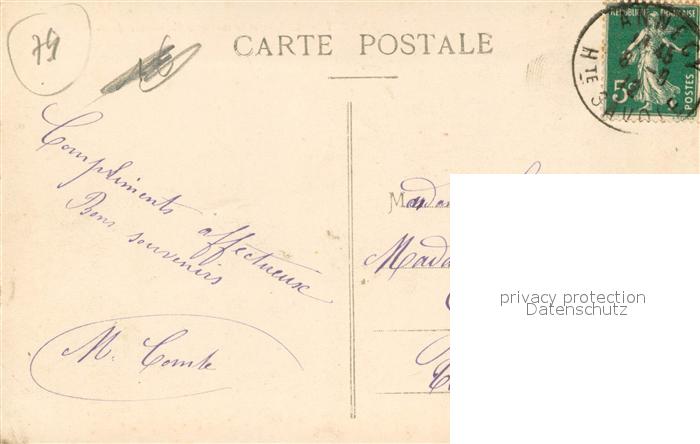 74
CARTE POSTALE
RÉPUBLIQUE FRANÇAISE
5c
POSTES
ANNECY
HTE SAVOIE
Compliments affectueux
Bons souvenirs
M. Comte
Madam
Mada
privacy protection
Datenschutz